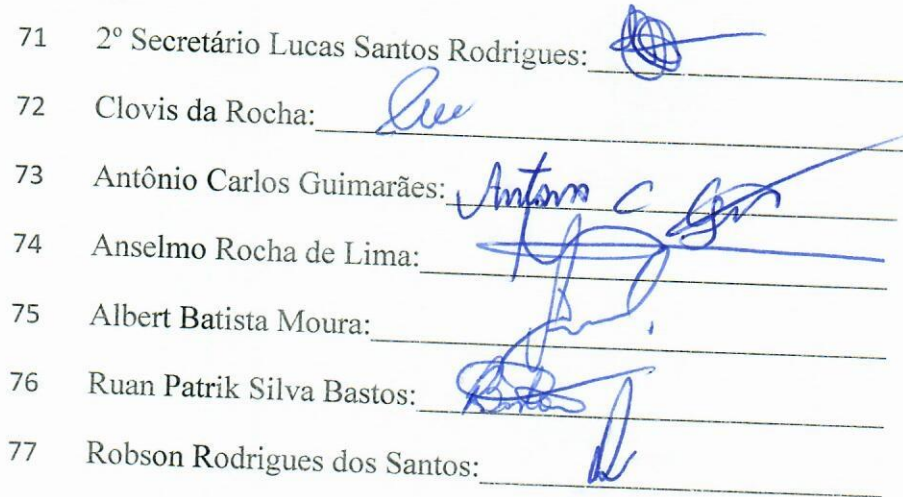 71 2º Secretário Lucas Santos Rodrigues:
72 Clovis da Rocha:
73 Antônio Carlos Guimarães: Antonio C
74 Anselmo Rocha de Lima:
75 Albert Batista Moura:
76 Ruan Patrik Silva Bastos: Bastos
77 Robson Rodrigues dos Santos: